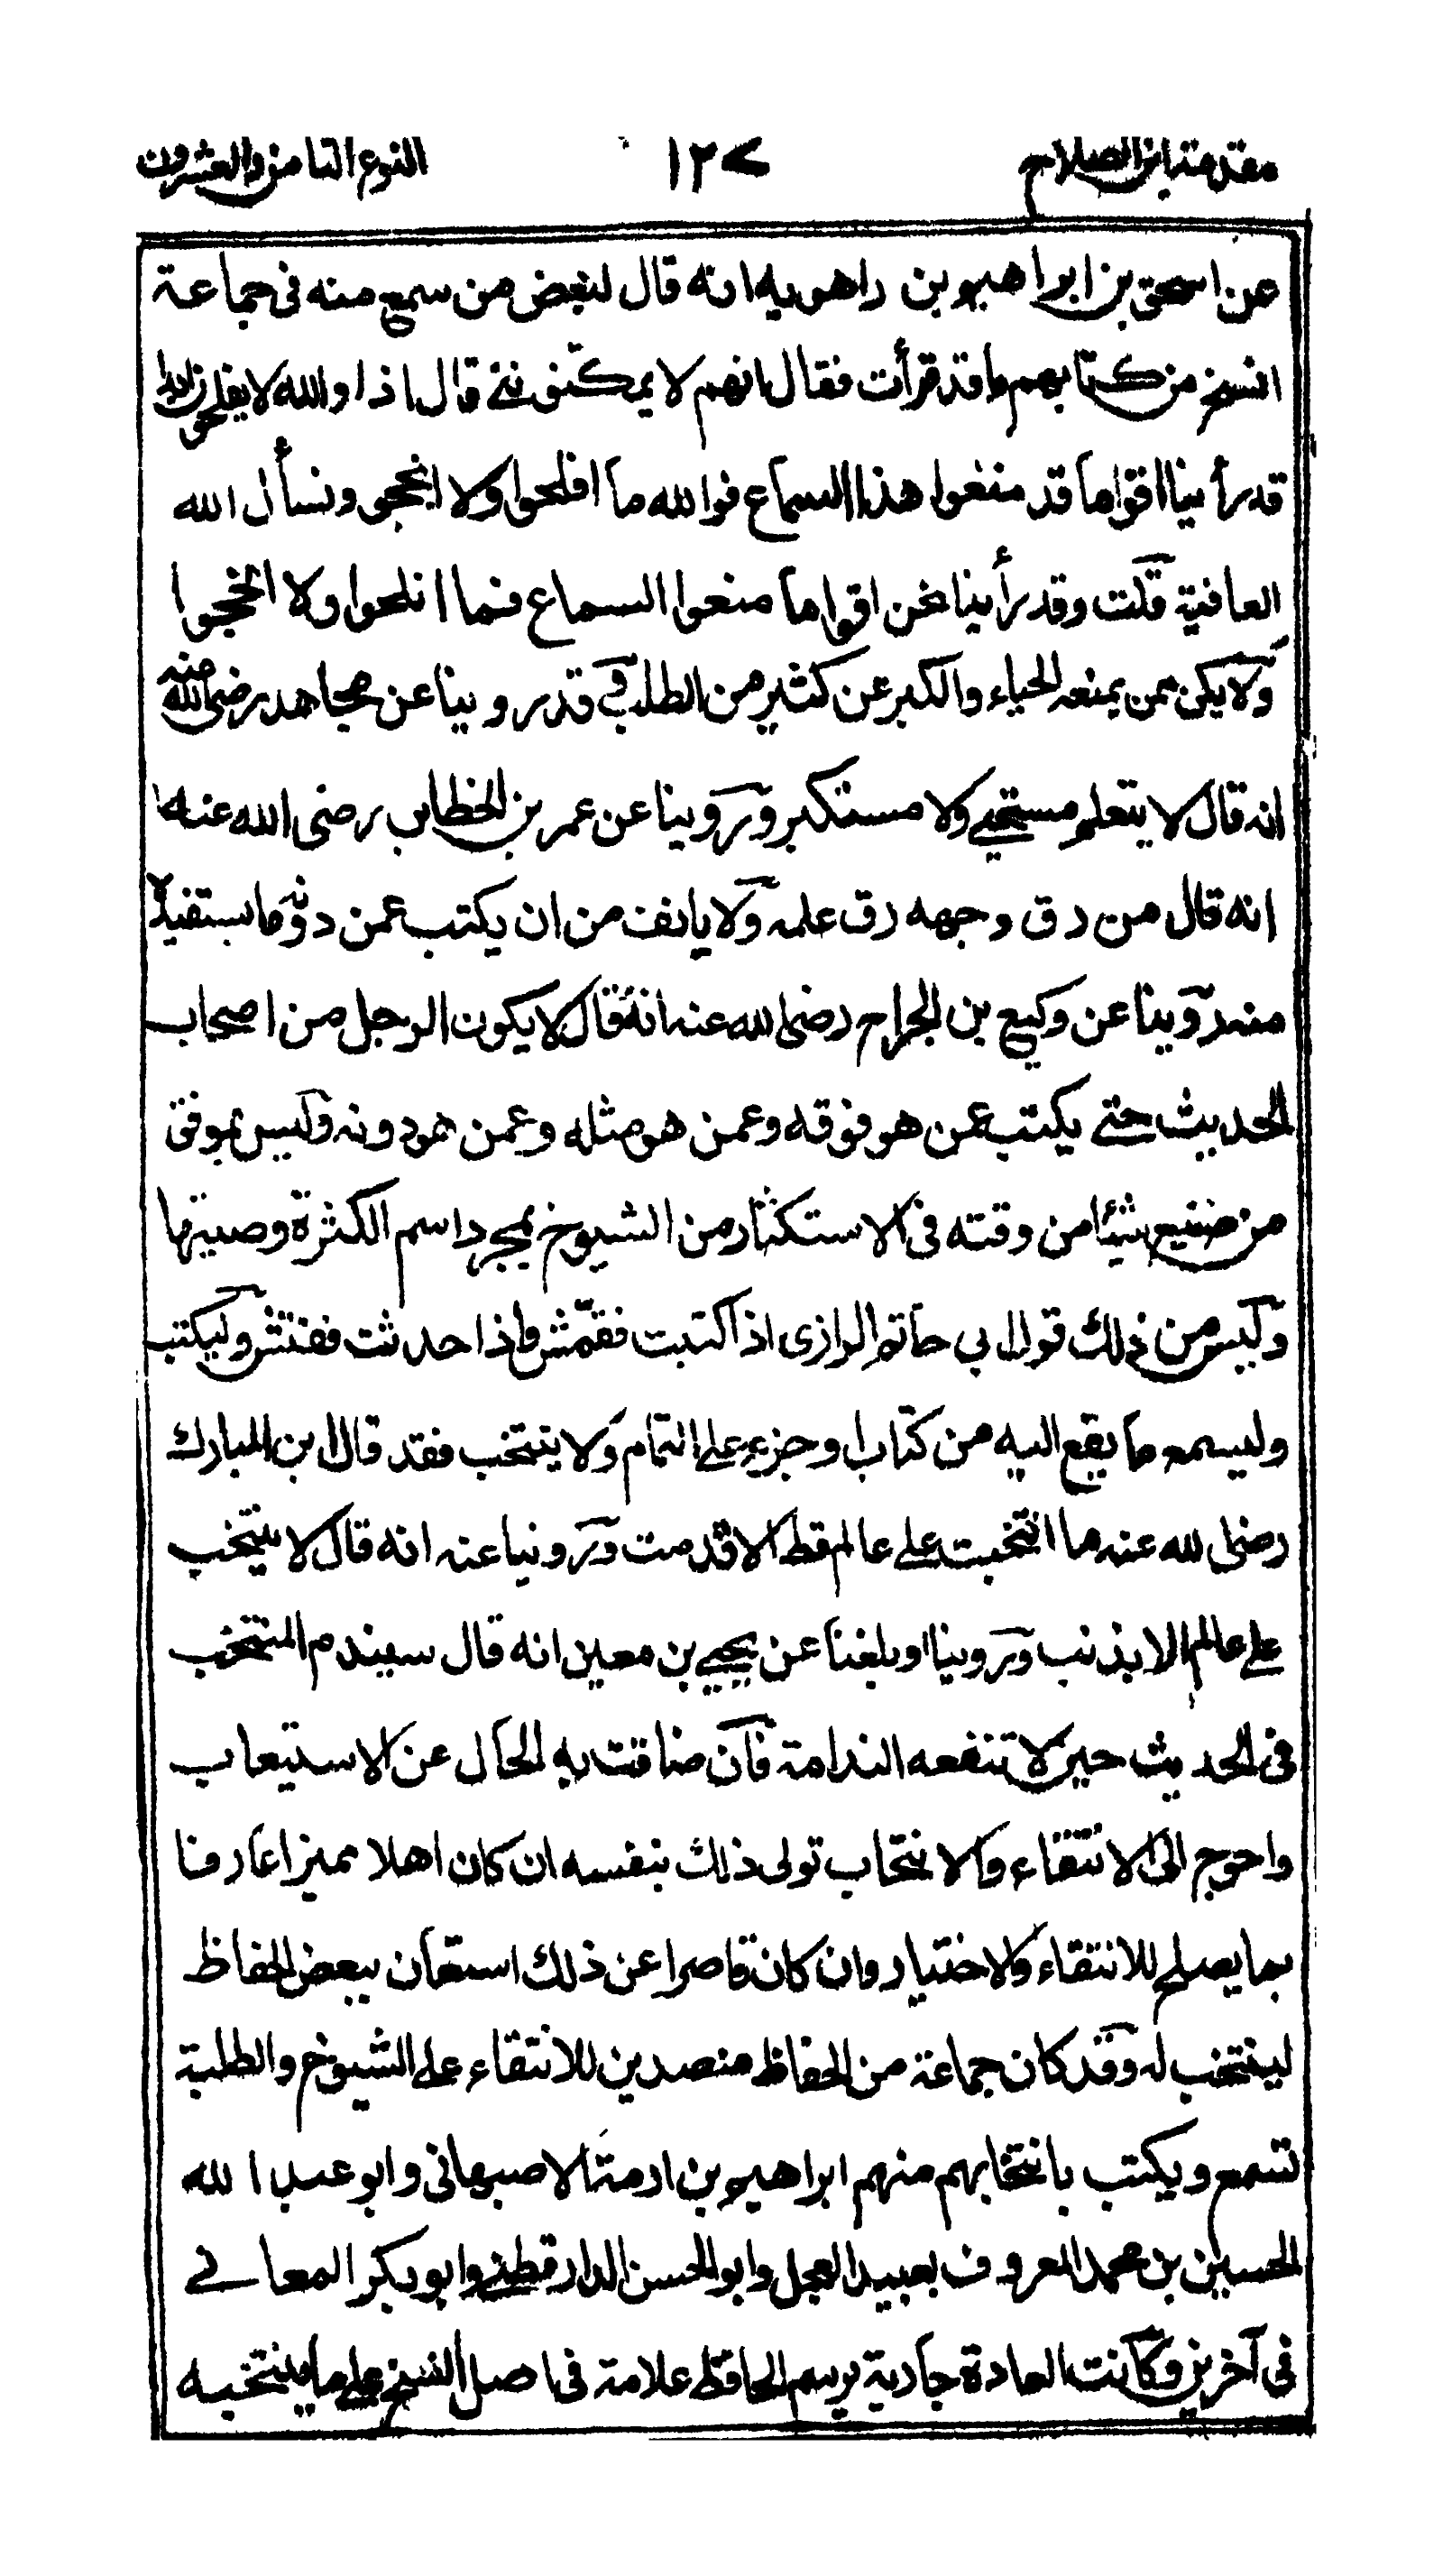 مقدمة ابن الصلاح ١٢٧ النوع الثامن والعشرون
عن اسحق بن ابراهيم بن راهويه انه قال لبعض من سمع منه في جماعة
انسخ من كتابهم ما قد قرأت فقال انهم لا يمكنونني قال اذا والله لا يفلحون
قد رأينا اقواما قد منعوا هذا السماع فوالله ما افلحوا ولا انجحوا ونسأل الله
العافية قلت وقد رأينا نحن اقواما منعوا السماع فما افلحوا ولا انجحوا
ولا يكن ممن يمنعه الحياء والكبر عن كثير من الطلب وقد روينا عن مجاهد رضى الله عنه
انه قال لا يتعلم مستحيي ولا مستكبر وروينا عن عمر بن الخطاب رضى الله عنه
انه قال من رق وجهه رق علمه ولا يانف من ان يكتب عمن دونه ما يستفيده
منه روينا عن وكيع بن الجراح رضى الله عنه انه قال لا يكون الرجل من اصحاب
الحديث حتى يكتب عمن هو فوقه وعمن هو مثله وعمن هو دونه وليس بموفق
من ضيع شيئا من وقته فى الاستكثار من الشيوخ بمجرد اسم الكثرة وصيتها
وليس من ذلك قول ابي حاتم الرازى اذا كتبت فقمش واذا حدثت ففتش وليكتب
وليسمع ما يقع اليه من كتاب او جزء على التمام ولا ينتخب فقد قال ابن المبارك
رضى الله عنه ما انتخبت على عالم قط الا ندمت وروينا عنه انه قال لا ينتخب
على عالم الا بذنب وروينا او بلغنا عن يحيى بن معين انه قال سيندم المنتخب
فى الحديث حين لا تنفعه الندامة فان ضاقت به الحال عن الاستيعاب
واحوج الى الانتقاء والانتخاب تولى ذلك بنفسه ان كان اهلا مميزا عارفا
بما يصلح للانتقاء والاختيار وان كان قاصرا عن ذلك استعان ببعض الحفاظ
لينتخب له وقد كان جماعة من الحفاظ متصدين للانتقاء على الشيوخ والطلبة
تسمع ويكتب بانتخابهم منهم ابراهيم بن ارمة الاصبهانى وابو عبد الله
الحسين بن محمد المعروف بعبيد العجل وابو الحسن الدارقطنى وابو بكر الجعابى
فى آخرين وكانت العادة جارية برسم الحافظ علامة فى اصل الشيخ على ما ينتخبه